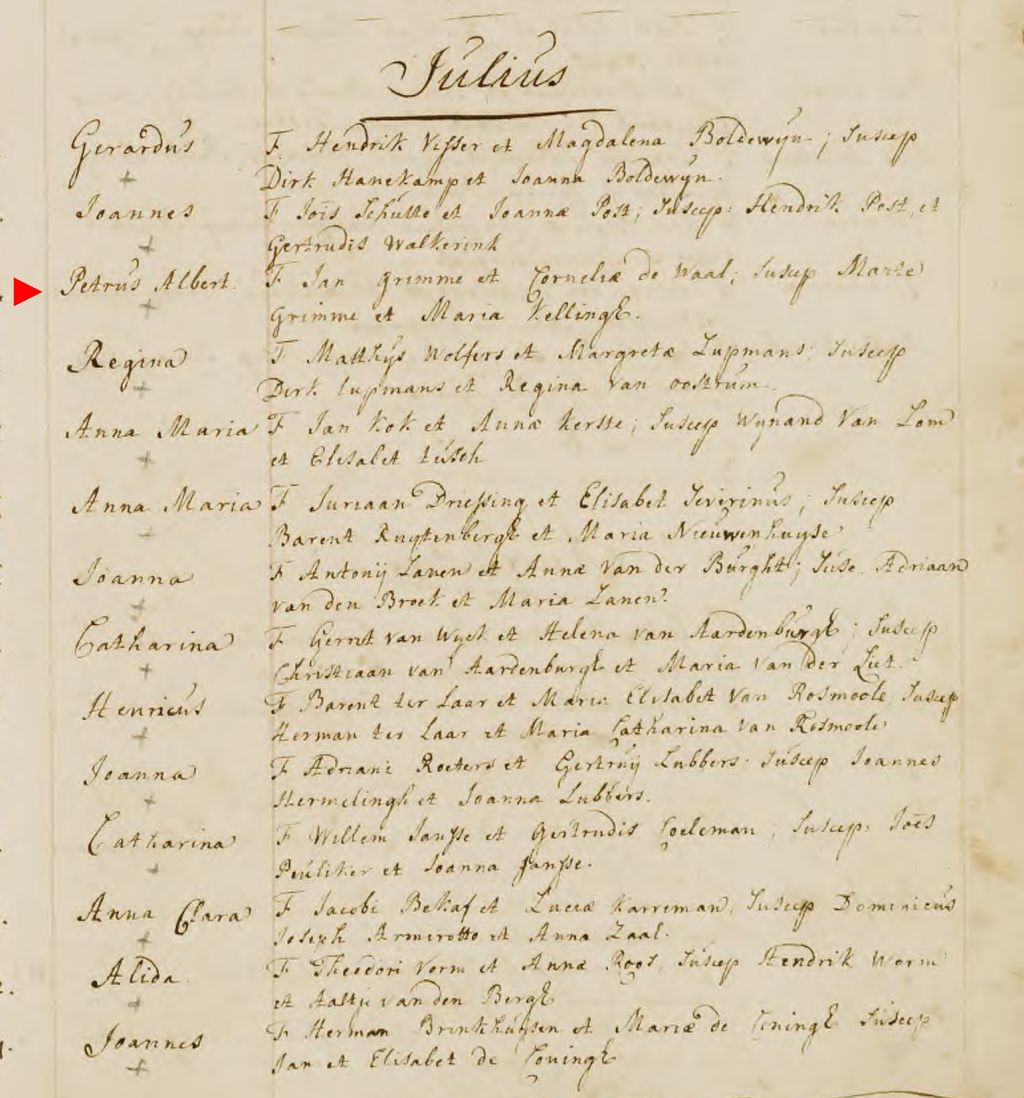 Julius
Gerardus F. Hendrik Visser et Magdalena Boldewyn; Suscep
Dirk Hanekamp et Joanna Boldewyn.
Joannes F Jois Schutte et Joannæ Post; Suscep: Hendrik Post, et
Gertrudis Walkerink
Petrus Albert. F Jan Grimme et Corneliæ de Waal; Suscep
Grimme et Maria Kellingh.
Regina F Matthijs Wolfers et Margretæ Lupmans; Suscep
Dirk Lupmans et Regina van oostrum.
Anna Maria F Jan Kok et Annæ Kerste; Suscep Wynand Van Lom
et Elisabet
Anna Maria F Juriaan Driessing et Elisabet Severinus; Suscep
Barent Ruytenbergh et Maria Nieuwenhuyse
Joanna F Antonij Lanen et Annæ Van der Burght; Susc. Adriaan
van den Broek et Maria Lanen.
Catharina F Gerrit van Wyck et Helena van Aardenburgh; Suscep
Christiaan van Aardenburgh et Maria Van der
Henricus F Barent ter Laar et Maria Elisabet Van Rosmoole Suscep
Herman ter Laar et Maria Catharina van Rosmoole
Joanna F Adriani Roeters et Gertruij Lubbers. Suscep Joannes
Hermelingh et Joanna Lubbers.
Catharina F Willem Jansse et Gertrudis Coeleman; Suscep: Joes
Peuliker et Joanna Jansse.
Anna Clara F Jacobi Bekaf et Luciæ Karreman, Suscep Dominicus
Joseph Armerotto et Anna Zaal.
Alida. F Theodori Vorm et Annæ Roos, Suscep Hendrik Worm
et Aaltje van den Bergh
Joannes F Herman Brinkhuysen et Mariæ de Coningh Suscep
Jan et Elisabet de Coningh